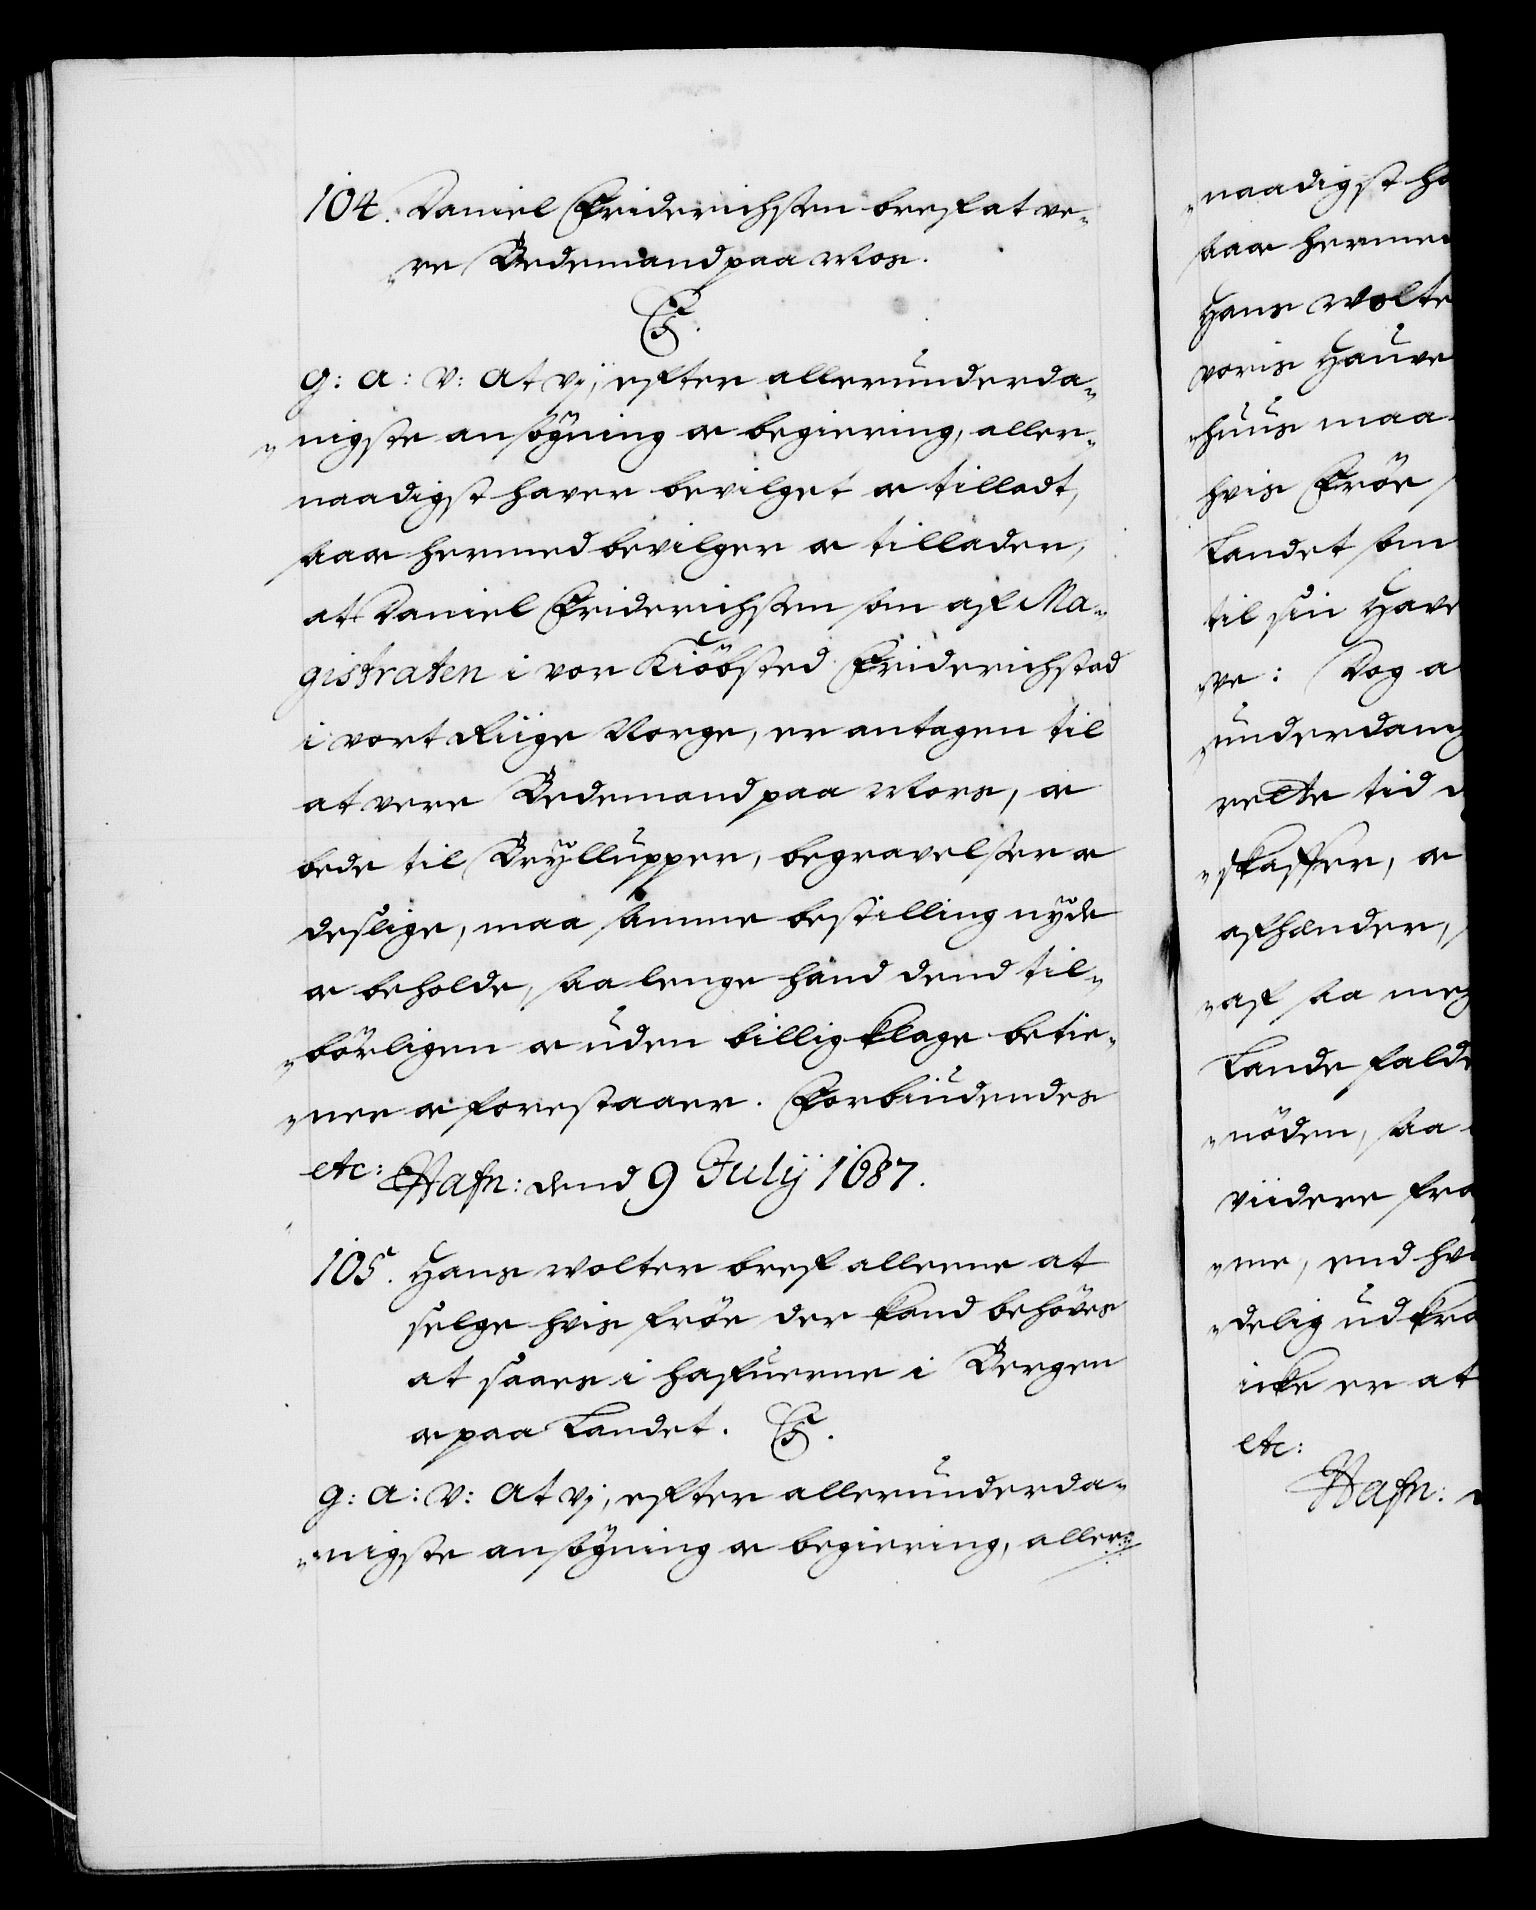 104. Daniel Friderichsten bref at ve-
re Bedemand paa Mos.
C5.
G: A: V: At vj, efter allerunderda-
nigste ansögning oc begiering, aller-
naadigst haver bevilget oc tilladt,
saa oc hermed bevilger oc tillader,
at Daniel Friderichsten som af Ma-
gistraten i vor Kiöbsted Friderichstad
i vort Riige Norge, er antagen til
at vere Bedemand paa Mors, oc
bede til Bryllupper, begravelser oc
deslige, maa samme bestilling nyde
oc beholde, saa lenge hand dend til-
börligen oc uden billig klage betie-
ner oc forestaaer. Forbiudendes
etc: Hafn: dend 9 Julij 1687.
105. Hans Wolter bref alleene at
selge hvis fröe der kand behöves
at saaes i hafuerne i Bergen
oc paa Landet. C5.
G: A: V: At vj, efter allerunderda-
nigste ansögning oc begiering, aller-
naadigst ha
saa oc herme
Hans Wolte
voris Hauve
huus maa
hvis Fröe
Landet som
til sin Have
ve: Dog a
underdanig
rette tid
skaffer, oc
afhender,
af saa meg
Lande falde
nöden, saa
viidere fra
me, end hv
delig udkra
icke er at
etc:
Hafn: